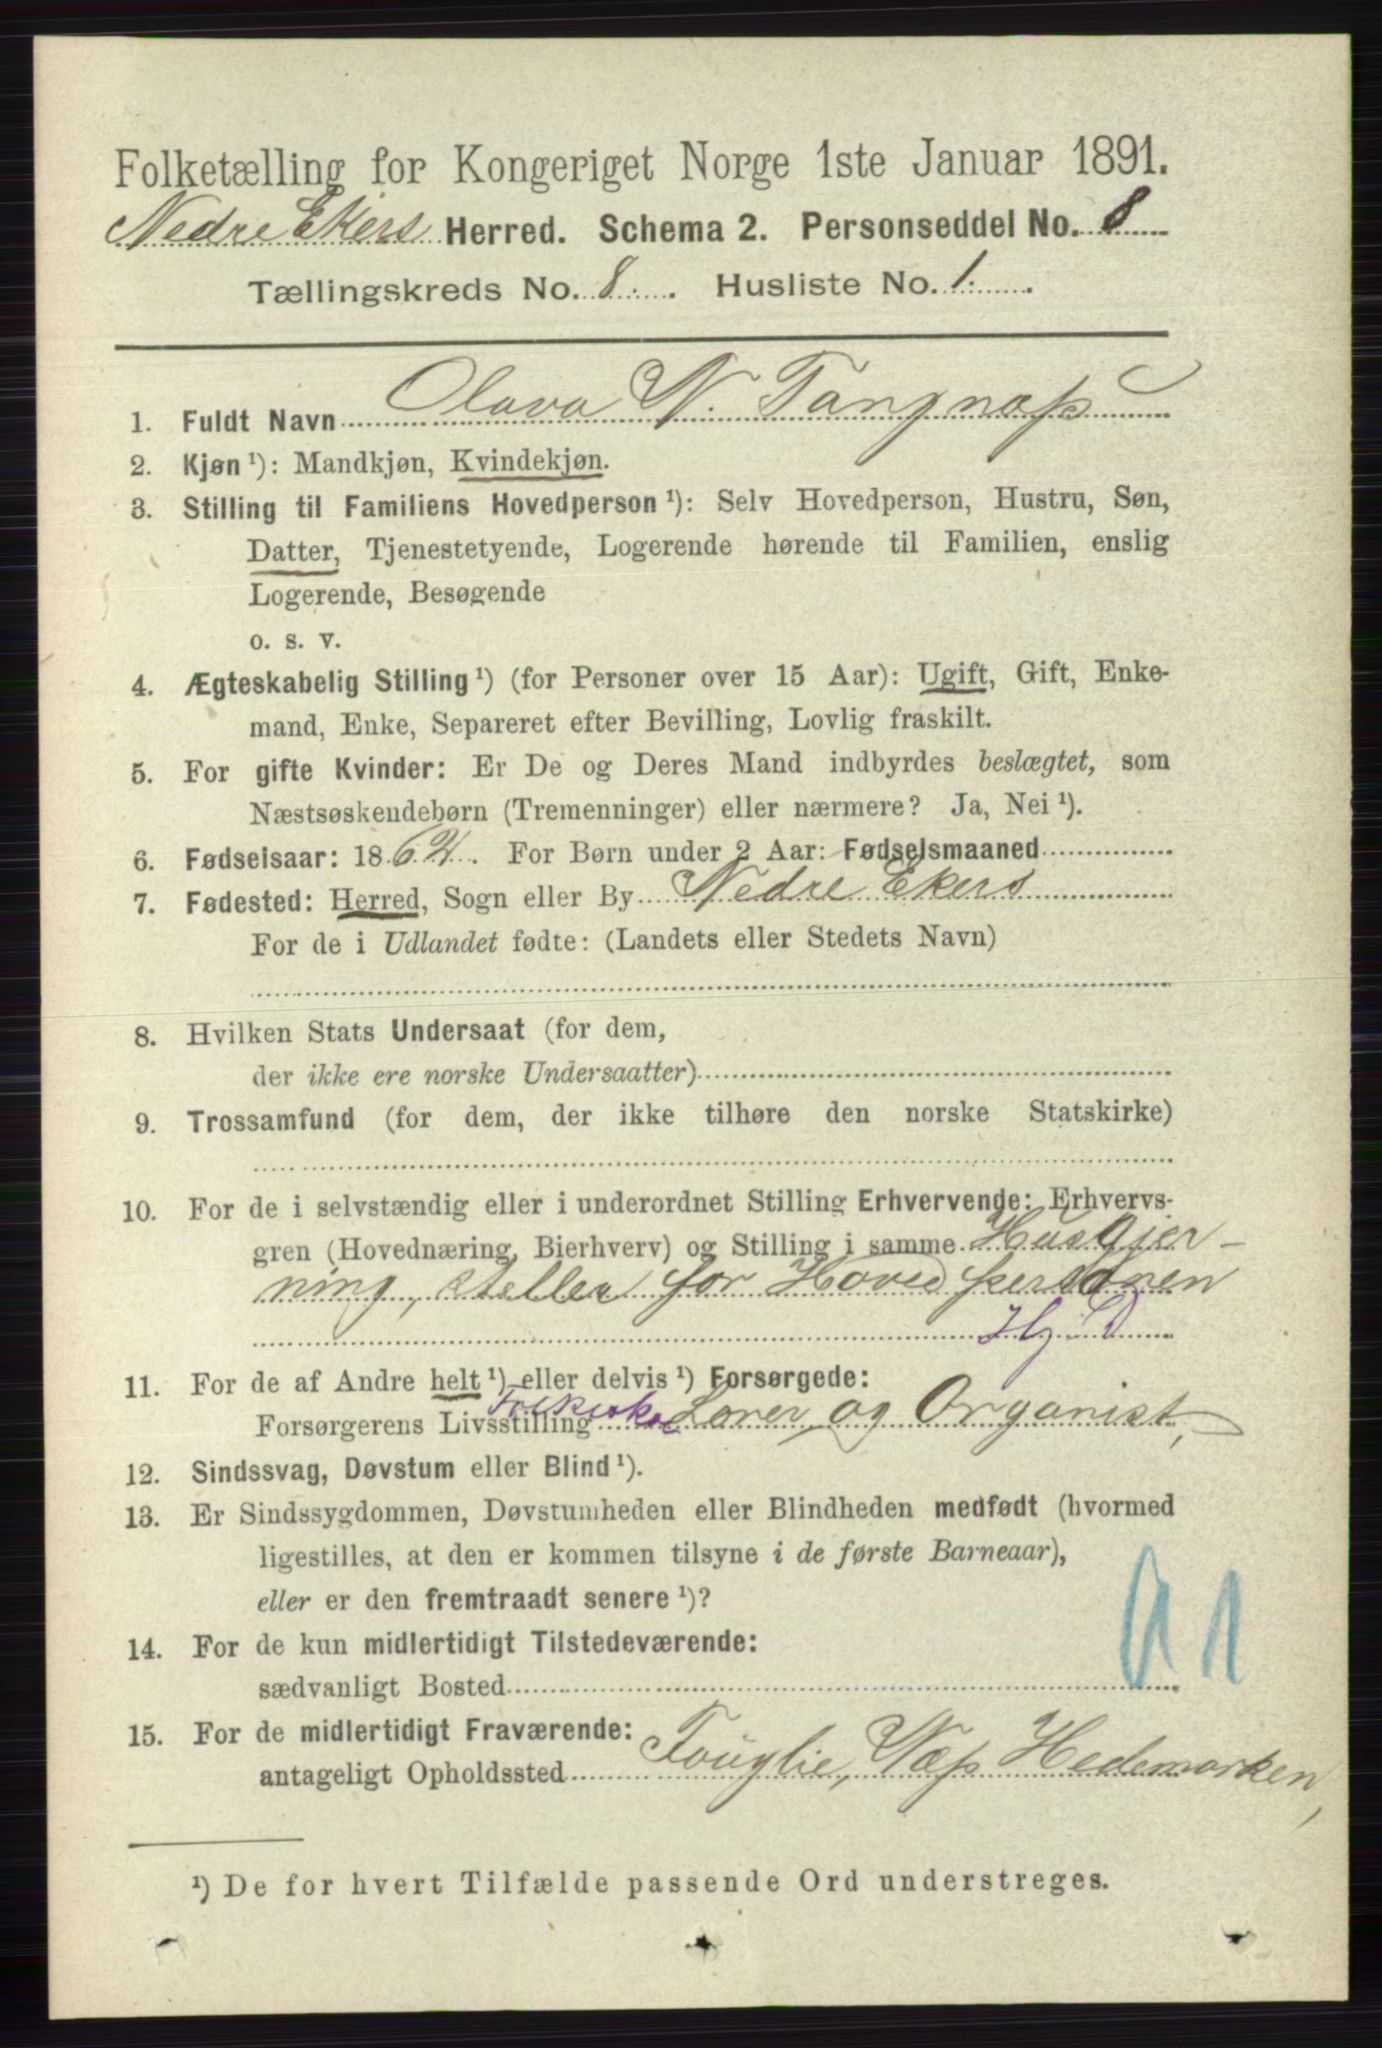 Folketælling for Kongeriget Norge 1ste Januar 1891.
Nedre Ekers Herred. Schema 2. Personseddel No. 8
Tællingskreds No. 8. Husliste No. 1.
1. Fuldt Navn Olava N. Tangnæss
2. Kjøn ¹): Mandkjøn, Kvindekjøn.
3. Stilling til Familiens Hovedperson ¹): Selv Hovedperson, Hustru, Søn,
Datter, Tjenestetyende, Logerende hørende til Familien, enslig
Logerende, Besøgende
o. s. v.
4. Ægteskabelig Stilling ¹) (for Personer over 15 Aar): Ugift, Gift, Enke-
mand, Enke, Separeret efter Bevilling, Lovlig fraskilt.
5. For gifte Kvinder: Er De og Deres Mand indbyrdes beslægtet, som
Næstsøskendebørn (Tremenninger) eller nærmere? Ja, Nei ¹).
6. Fødselsaar: 1864. For Børn under 2 Aar: Fødselsmaaned
7. Fødested: Herred, Sogn eller By Nedre Ekers
For de i Udlandet fødte: (Landets eller Stedets Navn)
8. Hvilken Stats Undersaat (for dem,
der ikke ere norske Undersaatter)
9. Trossamfund (for dem, der ikke tilhøre den norske Statskirke)
10. For de i selvstændig eller i underordnet Stilling Erhvervende: Erhvervs-
gren (Hovednæring, Bierhverv) og Stilling i samme Husgjer-
ning, steller for Hovedpersonen
Hj. D
11. For de af Andre helt ¹) eller delvis ¹) Forsørgede:
Forsørgerens Livsstilling Lærer og Organist,
12. Sindssvag, Døvstum eller Blind ¹).
13. Er Sindssygdommen, Døvstumheden eller Blindheden medfødt (hvormed
ligestilles, at den er kommen tilsyne i de første Barneaar),
eller er den fremtraadt senere ¹)?
14. For de kun midlertidigt Tilstedeværende:
sædvanligt Bosted
15. For de midlertidigt Fraværende:
antageligt Opholdssted Næss Hedemarken,
¹) De for hvert Tilfælde passende Ord understreges.